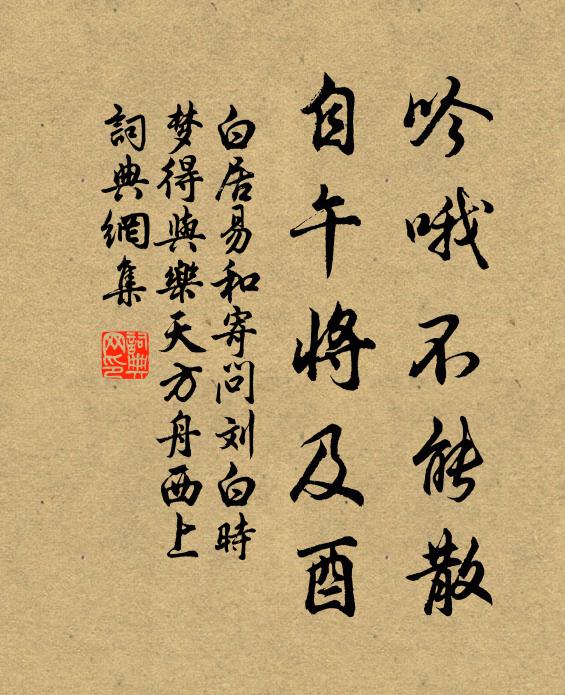 吟哦不能散
自午将及酉
白居易和寄问刘白時
梦得與樂天方舟西上
詞典網集
詞典网印